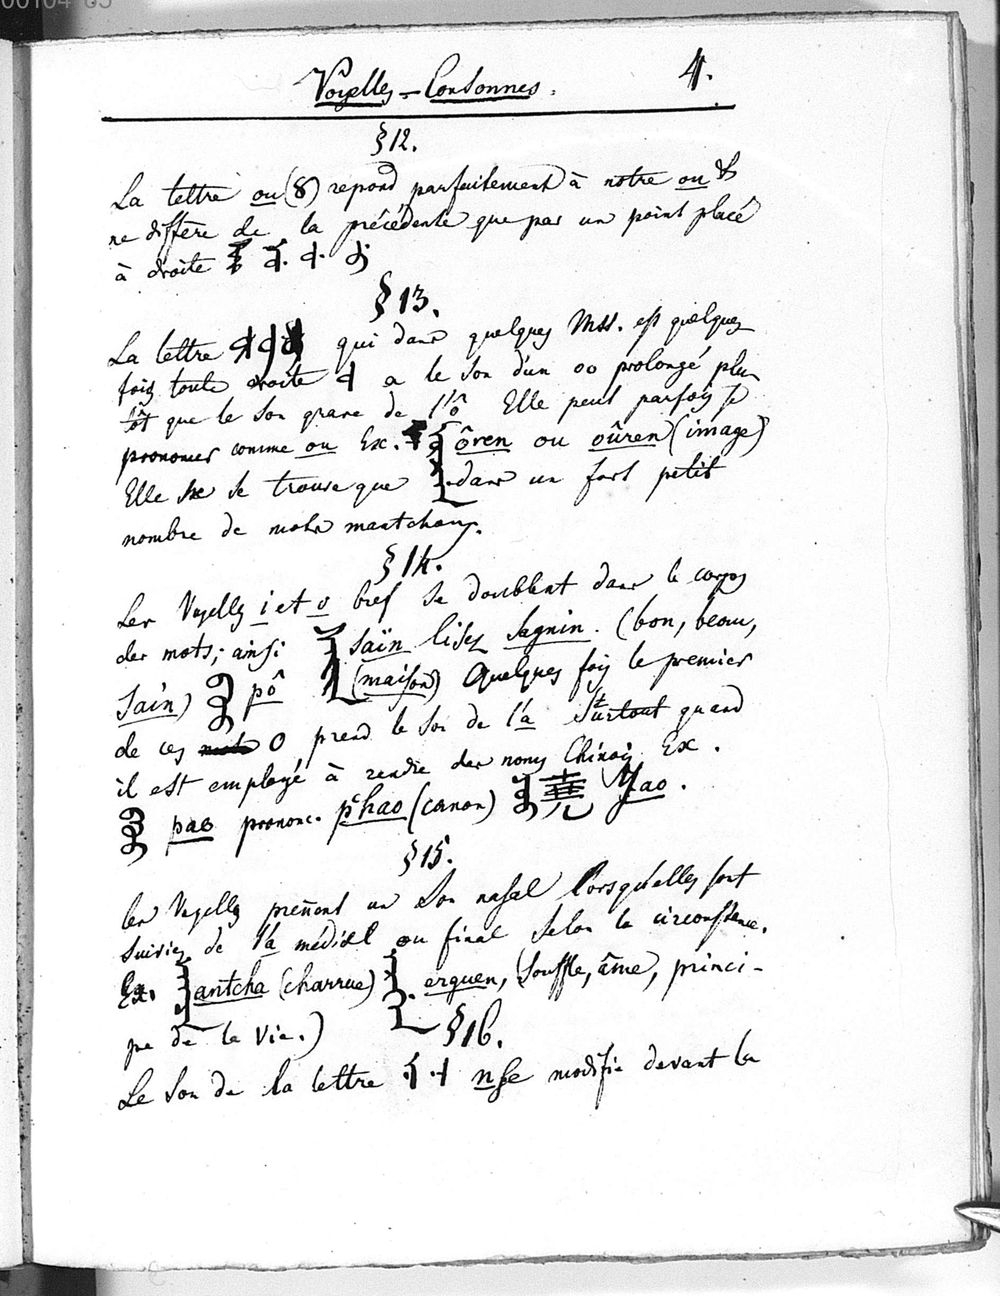 Voyelles = Consonnes. 4.
§ 12.
La lettre ou (8) repond parfaitement à notre ou &
ne diffère de la précédente que par un point placé
à droite
§ 13.
La lettre qui dans quelques Mss. est quelques
fois toute droite a le son d'un oo prolongé plu
tôt que le son grave de l'ô Elle peut parfois se
prononcer comme ou Ex. ôren ou oûren (image)
Elle ne se trouve que dans un fort petit
nombre de mots mantchous.
§ 14.
Les Voyelles i et o bref se doublent dans le corps
des mots; ainsi saïn lisez sagnin. (bon, beau,
sain) pô (maison) Quelques fois le premier
de ces o prend le son de l'a surtout quand
il est employé à rendre des noms Chinois Ex.
pao prononc. p'hao (canon) 堯 Yao.
§ 15.
les Voyelles prennent un son nasal lorsqu'elles sont
suivies de l'a médial ou final selon la circonstance.
Ex. antcha (charrue) erguen, (souffle, âme, princi-
pe de la vie.)
§ 16.
Le son de la lettre n se modifie devant la